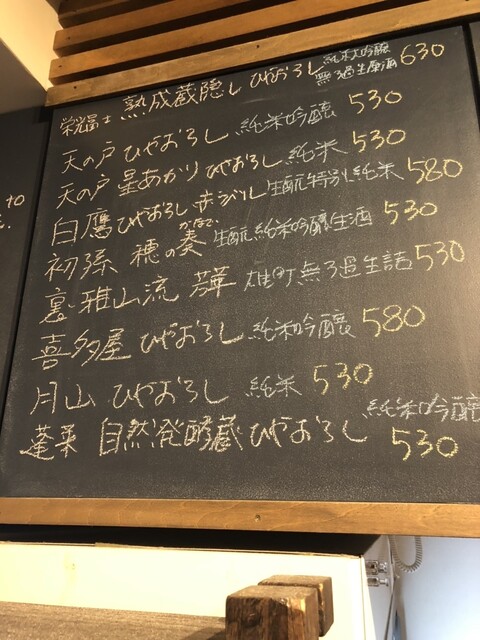 栄光冨士 熟成蔵隠し ひやおろし 純米大吟醸 無ろ過生原酒 630
天の戸 ひやおろし 純米吟醸 530
天の戸 星あかり ひやおろし 純米 530
白鷹 ひやおろし 赤ラベル 生酛特別純米 580
初孫 穂の奏 かなで 生酛純米吟醸生酒 530
裏・雅山流 芳華 雄町無ろ過生詰 530
喜多屋 ひやおろし 純米吟醸 580
月山 ひやおろし 純米 530
蓬莱 自然発酵蔵 ひやおろし 純米吟醸 530